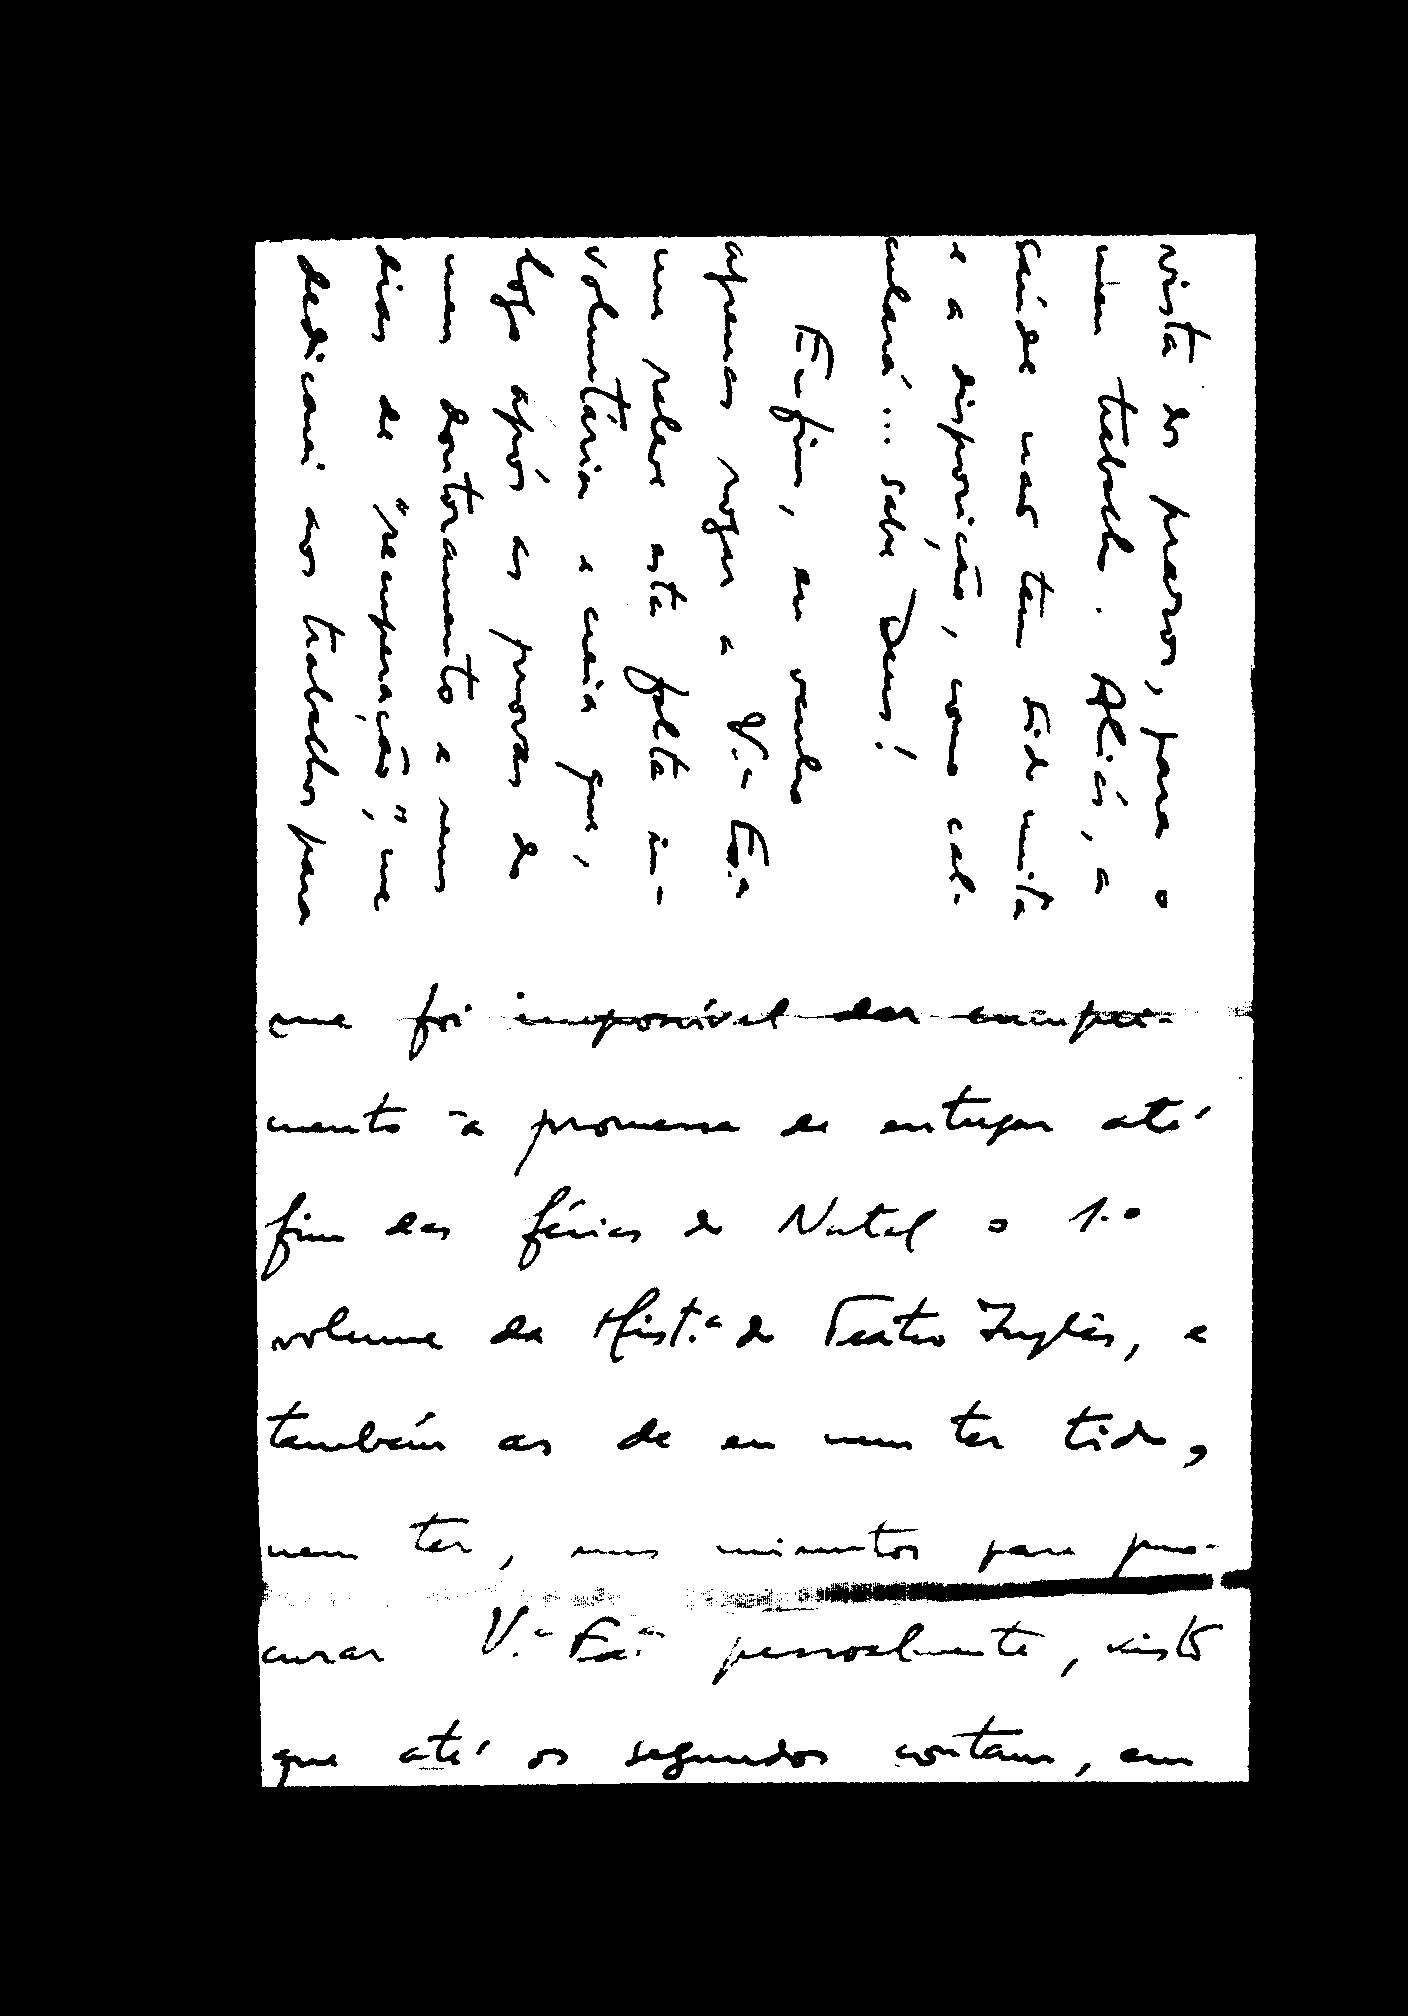 me foi impossível dar cumpri-
mento à promessa de entregar até
fim das férias do Natal o 1.o
volume da Hist.a do Teatro Inglês, e
também as de eu nem ter tido,
nem ter, uns minutos para pro-
curar V.a Exa.a pessoalmente, visto
que até os segundos contam, em
vista dos prazos, para o
meu trabalho. Aliás, a
saúde não tem sido muita
e a disposição, como cal-
culará... sabe Deus!
Enfim, eu venho
apenas rogar a V.a Ex.a
me releve esta falta in-
voluntária e creia que,
logo após as provas do
meu doutoramento e uns
dias de "recuperação", me
dedicarei aos trabalhos para